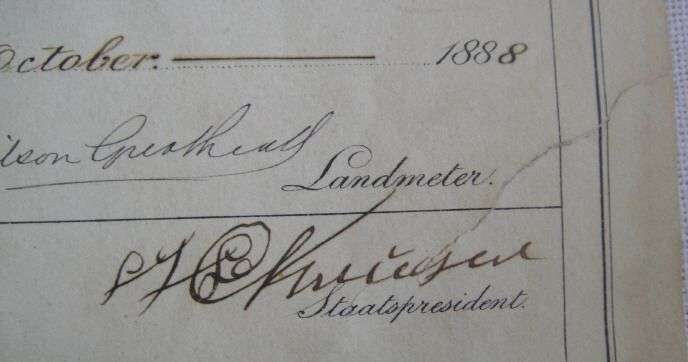 October. 1888
ilson Greathead
Landmeter.
S J P Kruger
Staatspresident.